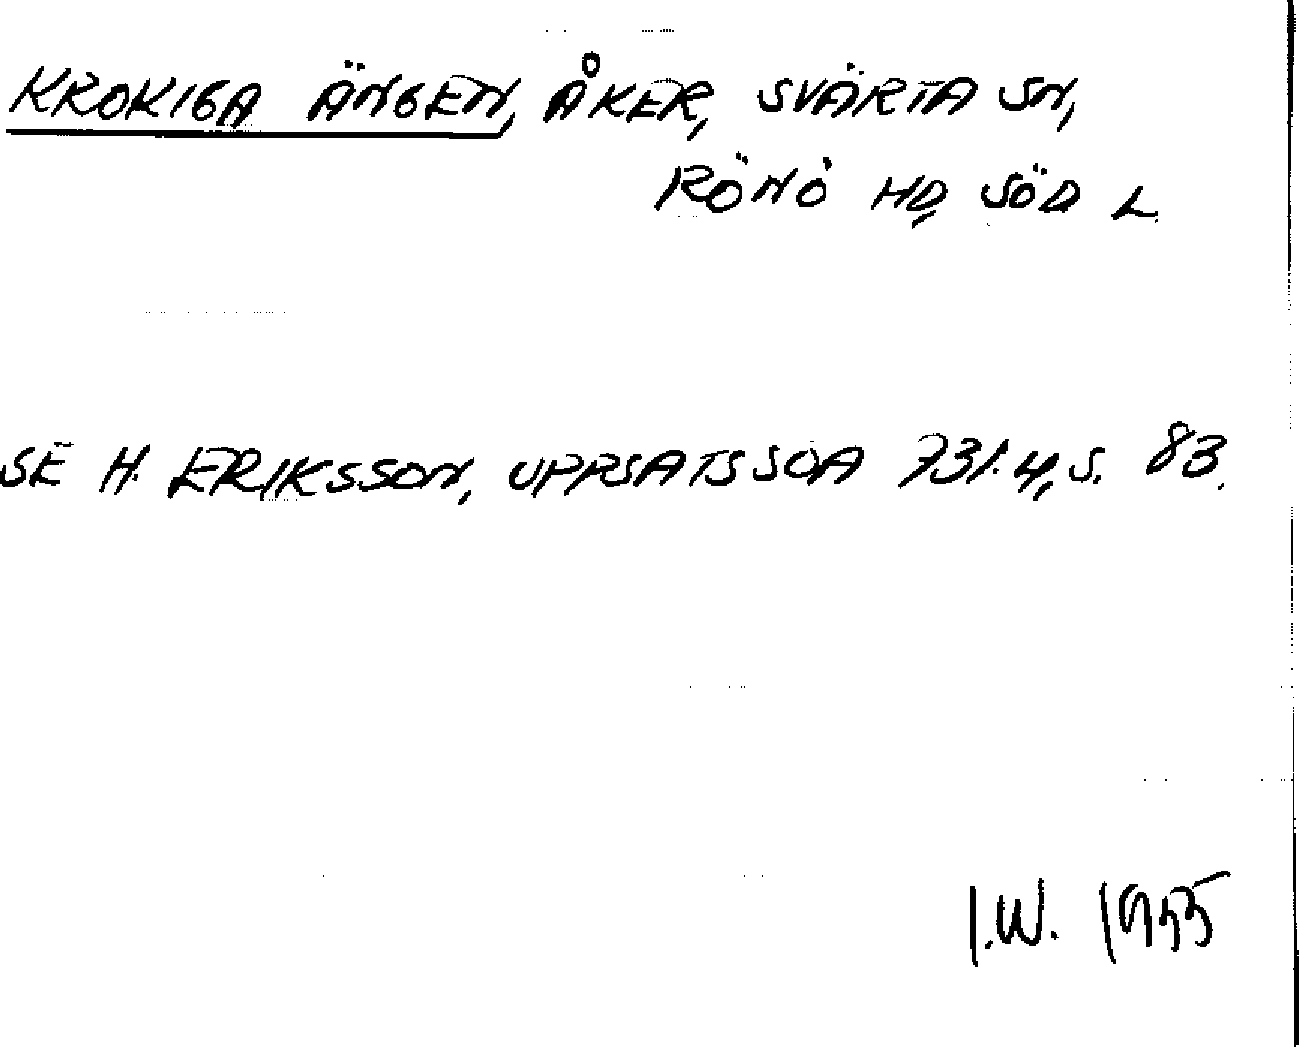 KROKIGA ÄNGEN, ÅKER, SVÄRTA SN,
RÖNÖ HD, SÖD L.
SE H. ERIKSSON, UPPSATS SOA 731.4, S. 83.
I.W. 1955